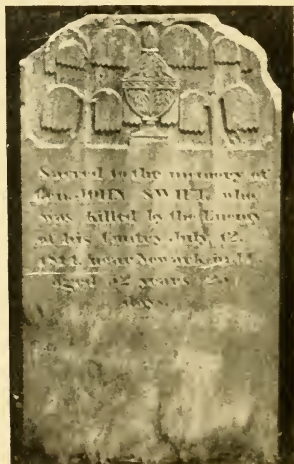 Sacred to the memory of
Gen. JOHN SWIFT, who
was killed by the Enemy
at his July 12.
1814, near Newark,
aged 52 years
days.